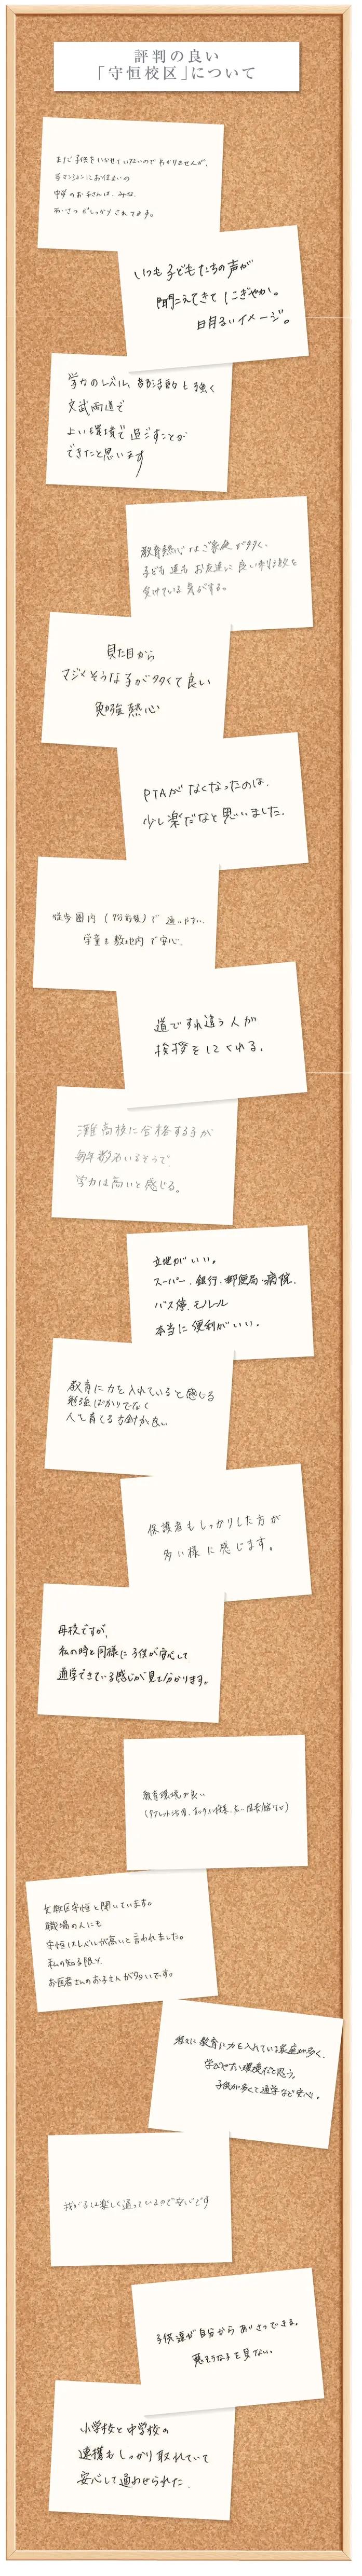 評判の良い
「守恒校区」について
まだ子供をいかせていないのでわかりませんが、
当マンションにお住まいの
中学のお子さんは、みな、
あいさつがしっかりされてます。
いつも子どもたちの声が
聞こえてきてにぎやか。
明るいイメージ。
学力のレベル、部活動も強く
文武両道で
よい環境で過ごすことが
できたと思います
教育熱心なご家庭が多く、
子ども達もお友達に良い刺激を
受けている気がする。
見た目から
マジメそうな子が多くて良い
勉強熱心
PTAがなくなったのは、
少し楽だなと思いました。
徒歩圏内(7分前後)で通いやすい。
学童も敷地内で安心。
道ですれ違う人が
挨拶をしてくれる。
灘高校に合格する子が
毎年数名いるそうで、
学力は高いと感じる。
立地がいい。
スーパー、銀行、郵便局、病院、
バス停、モノレール
本当に便利がいい。
教育に力を入れていると感じる
勉強ばかりでなく
人も育てる方針が良い
保護者もしっかりした方が
多い様に感じます。
母校ですが、
私の時と同様に子供が安心して
通学できている感じが見て分かります。
教育環境が良い
文教区守恒と聞いています。
職場の人にも
守恒はレベルが高いと言われました。
私の知る限り、
お医者さんのお子さんが多いです。
教育に力を入れている家庭が多く、
学びやすい環境だと思う。
子供が多くて通学など安心。
我が子は楽しく通っているので安心です
子供達が自分からあいさつできる。
悪そうな子を見ない。
小学校と中学校の
連携もしっかり取れていて
安心して通わせられた。